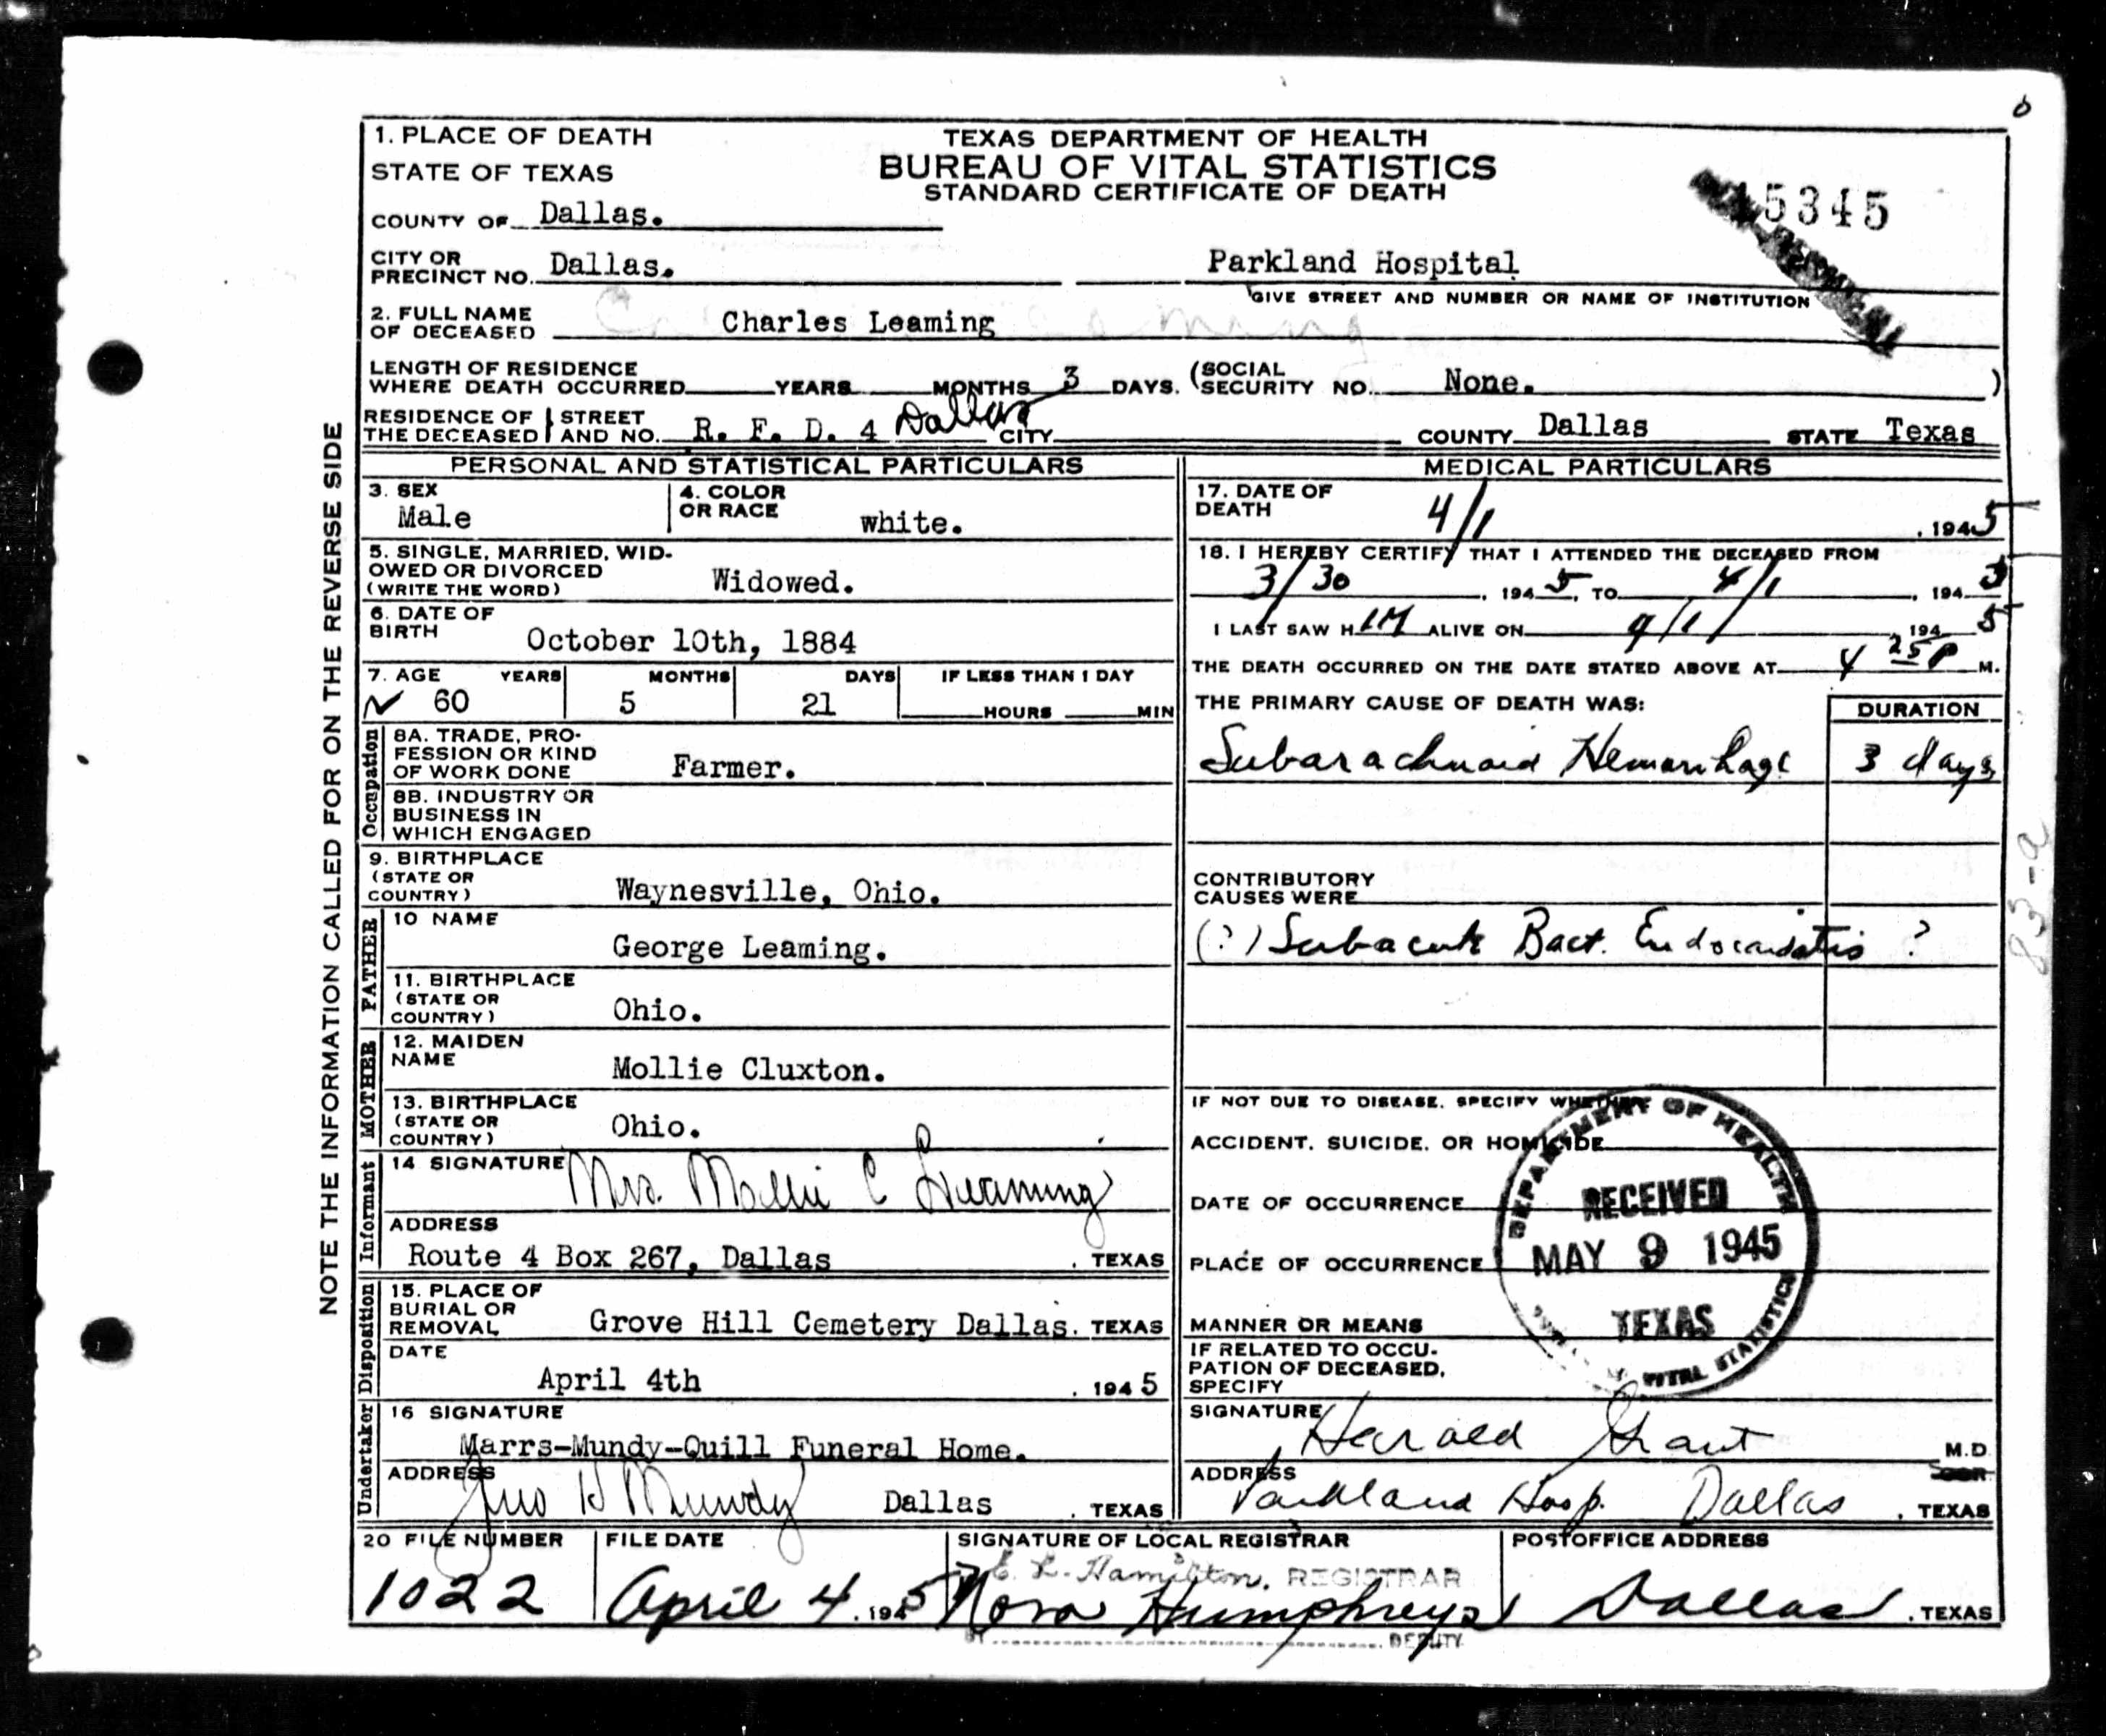 1. PLACE OF DEATH
STATE OF TEXAS
COUNTY OF Dallas.
CITY OR PRECINCT NO. Dallas.
TEXAS DEPARTMENT OF HEALTH
BUREAU OF VITAL STATISTICS
STANDARD CERTIFICATE OF DEATH
15345
Parkland Hospital
GIVE STREET AND NUMBER OR NAME OF INSTITUTION
2. FULL NAME OF DECEASED Charles Leaming
LENGTH OF RESIDENCE
WHERE DEATH OCCURRED YEARS MONTHS 3 DAYS. (SOCIAL SECURITY NO. None. )
RESIDENCE OF THE DECEASED STREET AND NO. R. F. D. 4 Dallas CITY COUNTY Dallas STATE Texas
PERSONAL AND STATISTICAL PARTICULARS
3. SEX Male
4. COLOR OR RACE white.
5. SINGLE, MARRIED, WID-
OWED OR DIVORCED
(WRITE THE WORD) Widowed.
6. DATE OF BIRTH October 10th, 1884
7. AGE YEARS MONTHS DAYS IF LESS THAN 1 DAY
60 5 21 HOURS MIN
Occupation
8A. TRADE, PRO-
FESSION OR KIND
OF WORK DONE Farmer.
8B. INDUSTRY OR
BUSINESS IN
WHICH ENGAGED
9. BIRTHPLACE
(STATE OR
COUNTRY) Waynesville, Ohio.
FATHER
10 NAME George Leaming.
11. BIRTHPLACE
(STATE OR
COUNTRY) Ohio.
MOTHER
12. MAIDEN NAME Mollie Cluxton.
13. BIRTHPLACE
(STATE OR
COUNTRY) Ohio.
Informant
14 SIGNATURE Mrs. Mollie C Leaming
ADDRESS
Route 4 Box 267, Dallas . TEXAS
Disposition
15. PLACE OF
BURIAL OR
REMOVAL Grove Hill Cemetery Dallas. TEXAS
DATE April 4th . 1945
Undertaker
16 SIGNATURE
Marrs-Mundy-Quill Funeral Home.
ADDRESS Jno H Mundy Dallas . TEXAS
MEDICAL PARTICULARS
17. DATE OF DEATH 4/1 . 1945
18. I HEREBY CERTIFY THAT I ATTENDED THE DECEASED FROM
3/30 , 1945, TO 4/1 , 1945
I LAST SAW HIM ALIVE ON 4/1 , 1945
THE DEATH OCCURRED ON THE DATE STATED ABOVE AT 4 25 P M.
THE PRIMARY CAUSE OF DEATH WAS: DURATION
Subarachnoid Hemorrhage 3 days
CONTRIBUTORY
CAUSES WERE
(?) Subacute Bact. Endocarditis ?
IF NOT DUE TO DISEASE, SPECIFY WHETHER
ACCIDENT, SUICIDE, OR HOMICIDE
DATE OF OCCURRENCE
PLACE OF OCCURRENCE
MANNER OR MEANS
IF RELATED TO OCCU-
PATION OF DECEASED,
SPECIFY
DEPARTMENT OF HEALTH
RECEIVED
MAY 9 1945
TEXAS
VITAL STATISTICS
SIGNATURE Harold Grant M.D.
ADDRESS Parkland Hosp. Dallas . TEXAS
20 FILE NUMBER 1022
FILE DATE April 4 . 1945
SIGNATURE OF LOCAL REGISTRAR
E. L. Hamilton, REGISTRAR
Nora Humphreys
BY DEPUTY
POSTOFFICE ADDRESS
Dallas . TEXAS
NOTE THE INFORMATION CALLED FOR ON THE REVERSE SIDE
83-a